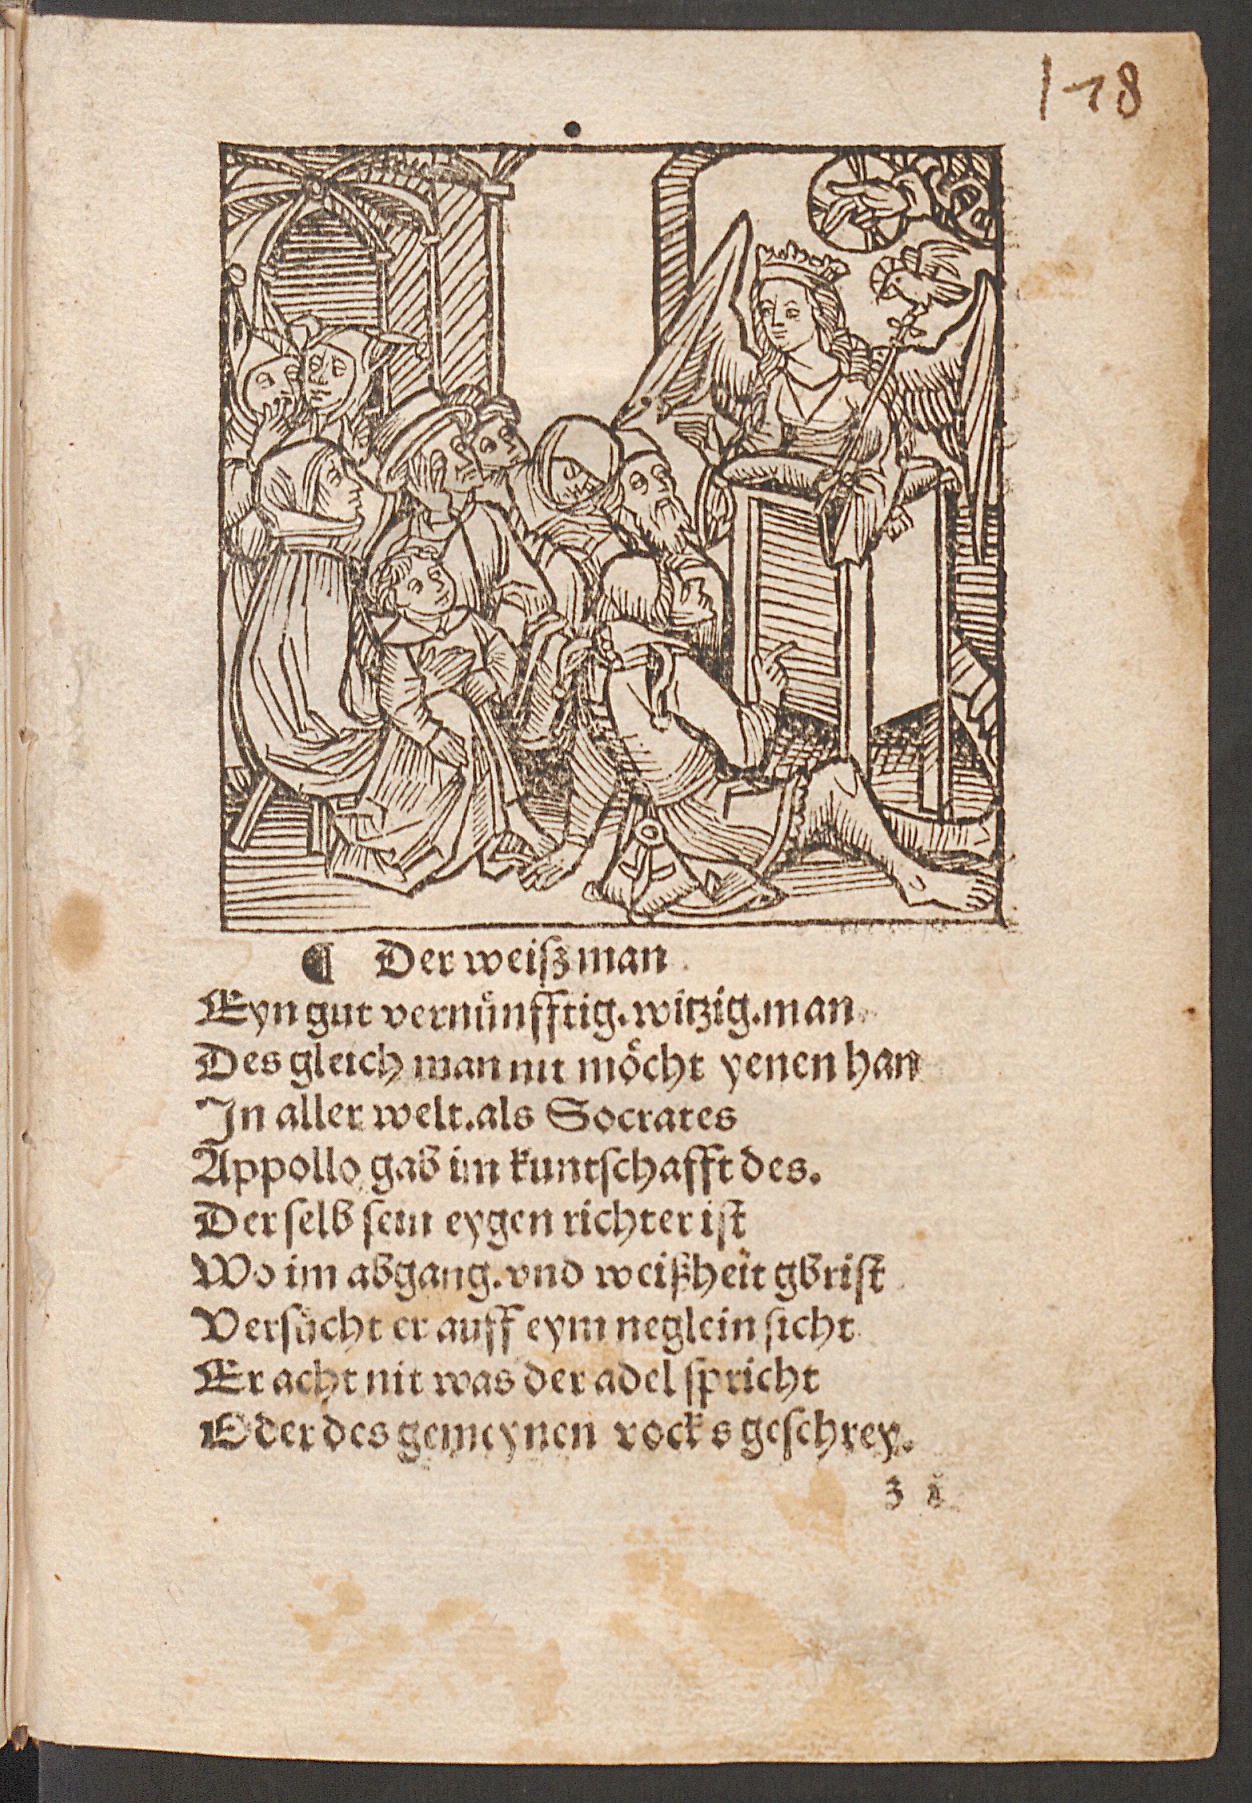 178
¶ Der weiſz man
Eyn gut vernuͤnfftig. witzig. man
Des gleich man nit moͤcht yenen han
In aller welt. als Socrates
Appollo gab im kuntſchafft des.
Der ſelb ſein eygen richter iſt
Wo im abgang. vnd weißheit gbriſt
Verſuͦcht er auff eym neglein ſicht
Er acht nit was der adel ſpricht
Oder des gemeynen vocks geſchrey.
z